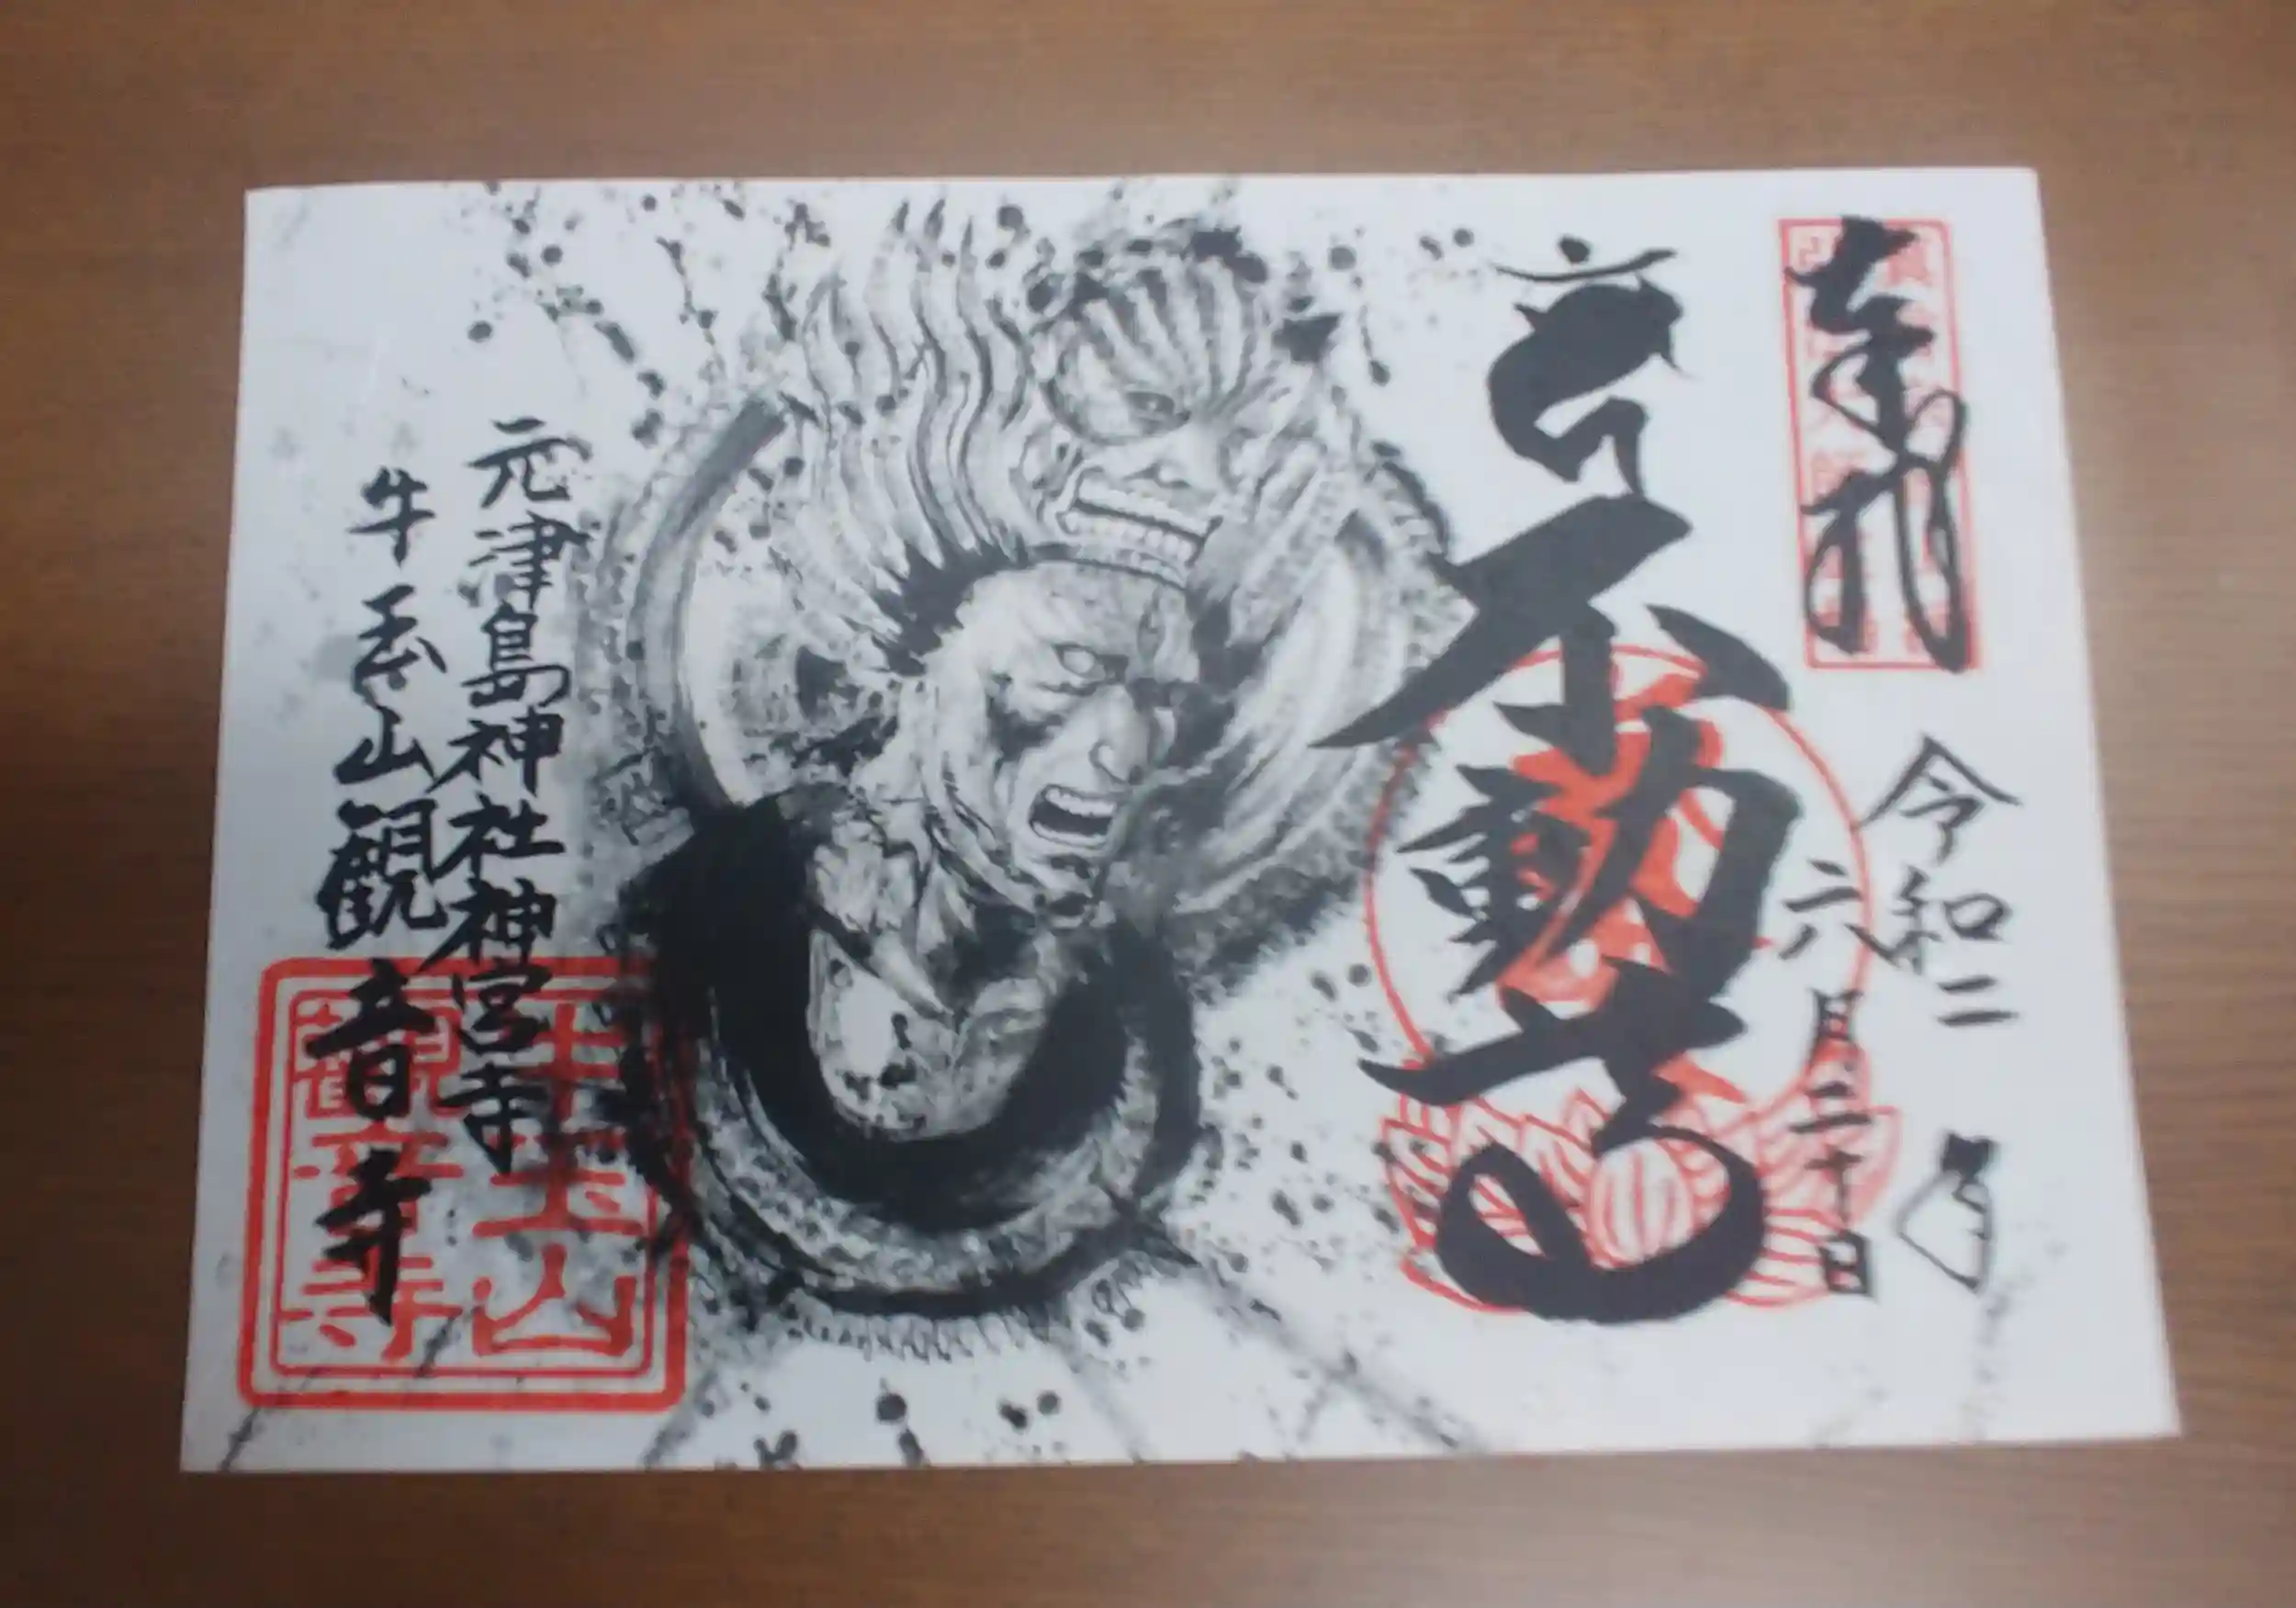 奉拝
令和二年
六月二十日
不動尊
元津島神社神宮寺
牛玉山観音寺
牛玉山
観音寺